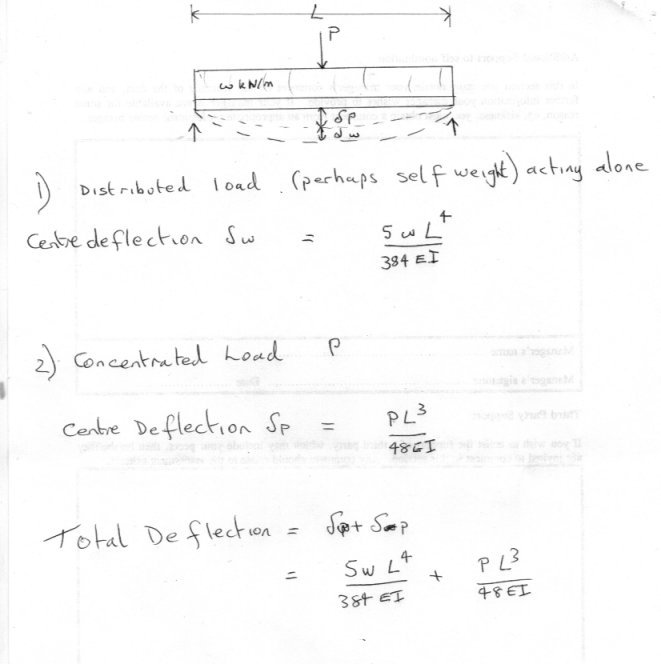 L
P
w kN/m
δp
δw
1) Distributed load (perhaps self weight) acting alone
Centre deflection δw = 5 w L⁴ / 384 EI
2) Concentrated Load P
Centre Deflection δp = PL³ / 48EI
Total Deflection = + δp
= 5w L⁴ / 384 EI + P L³ / 48 EI